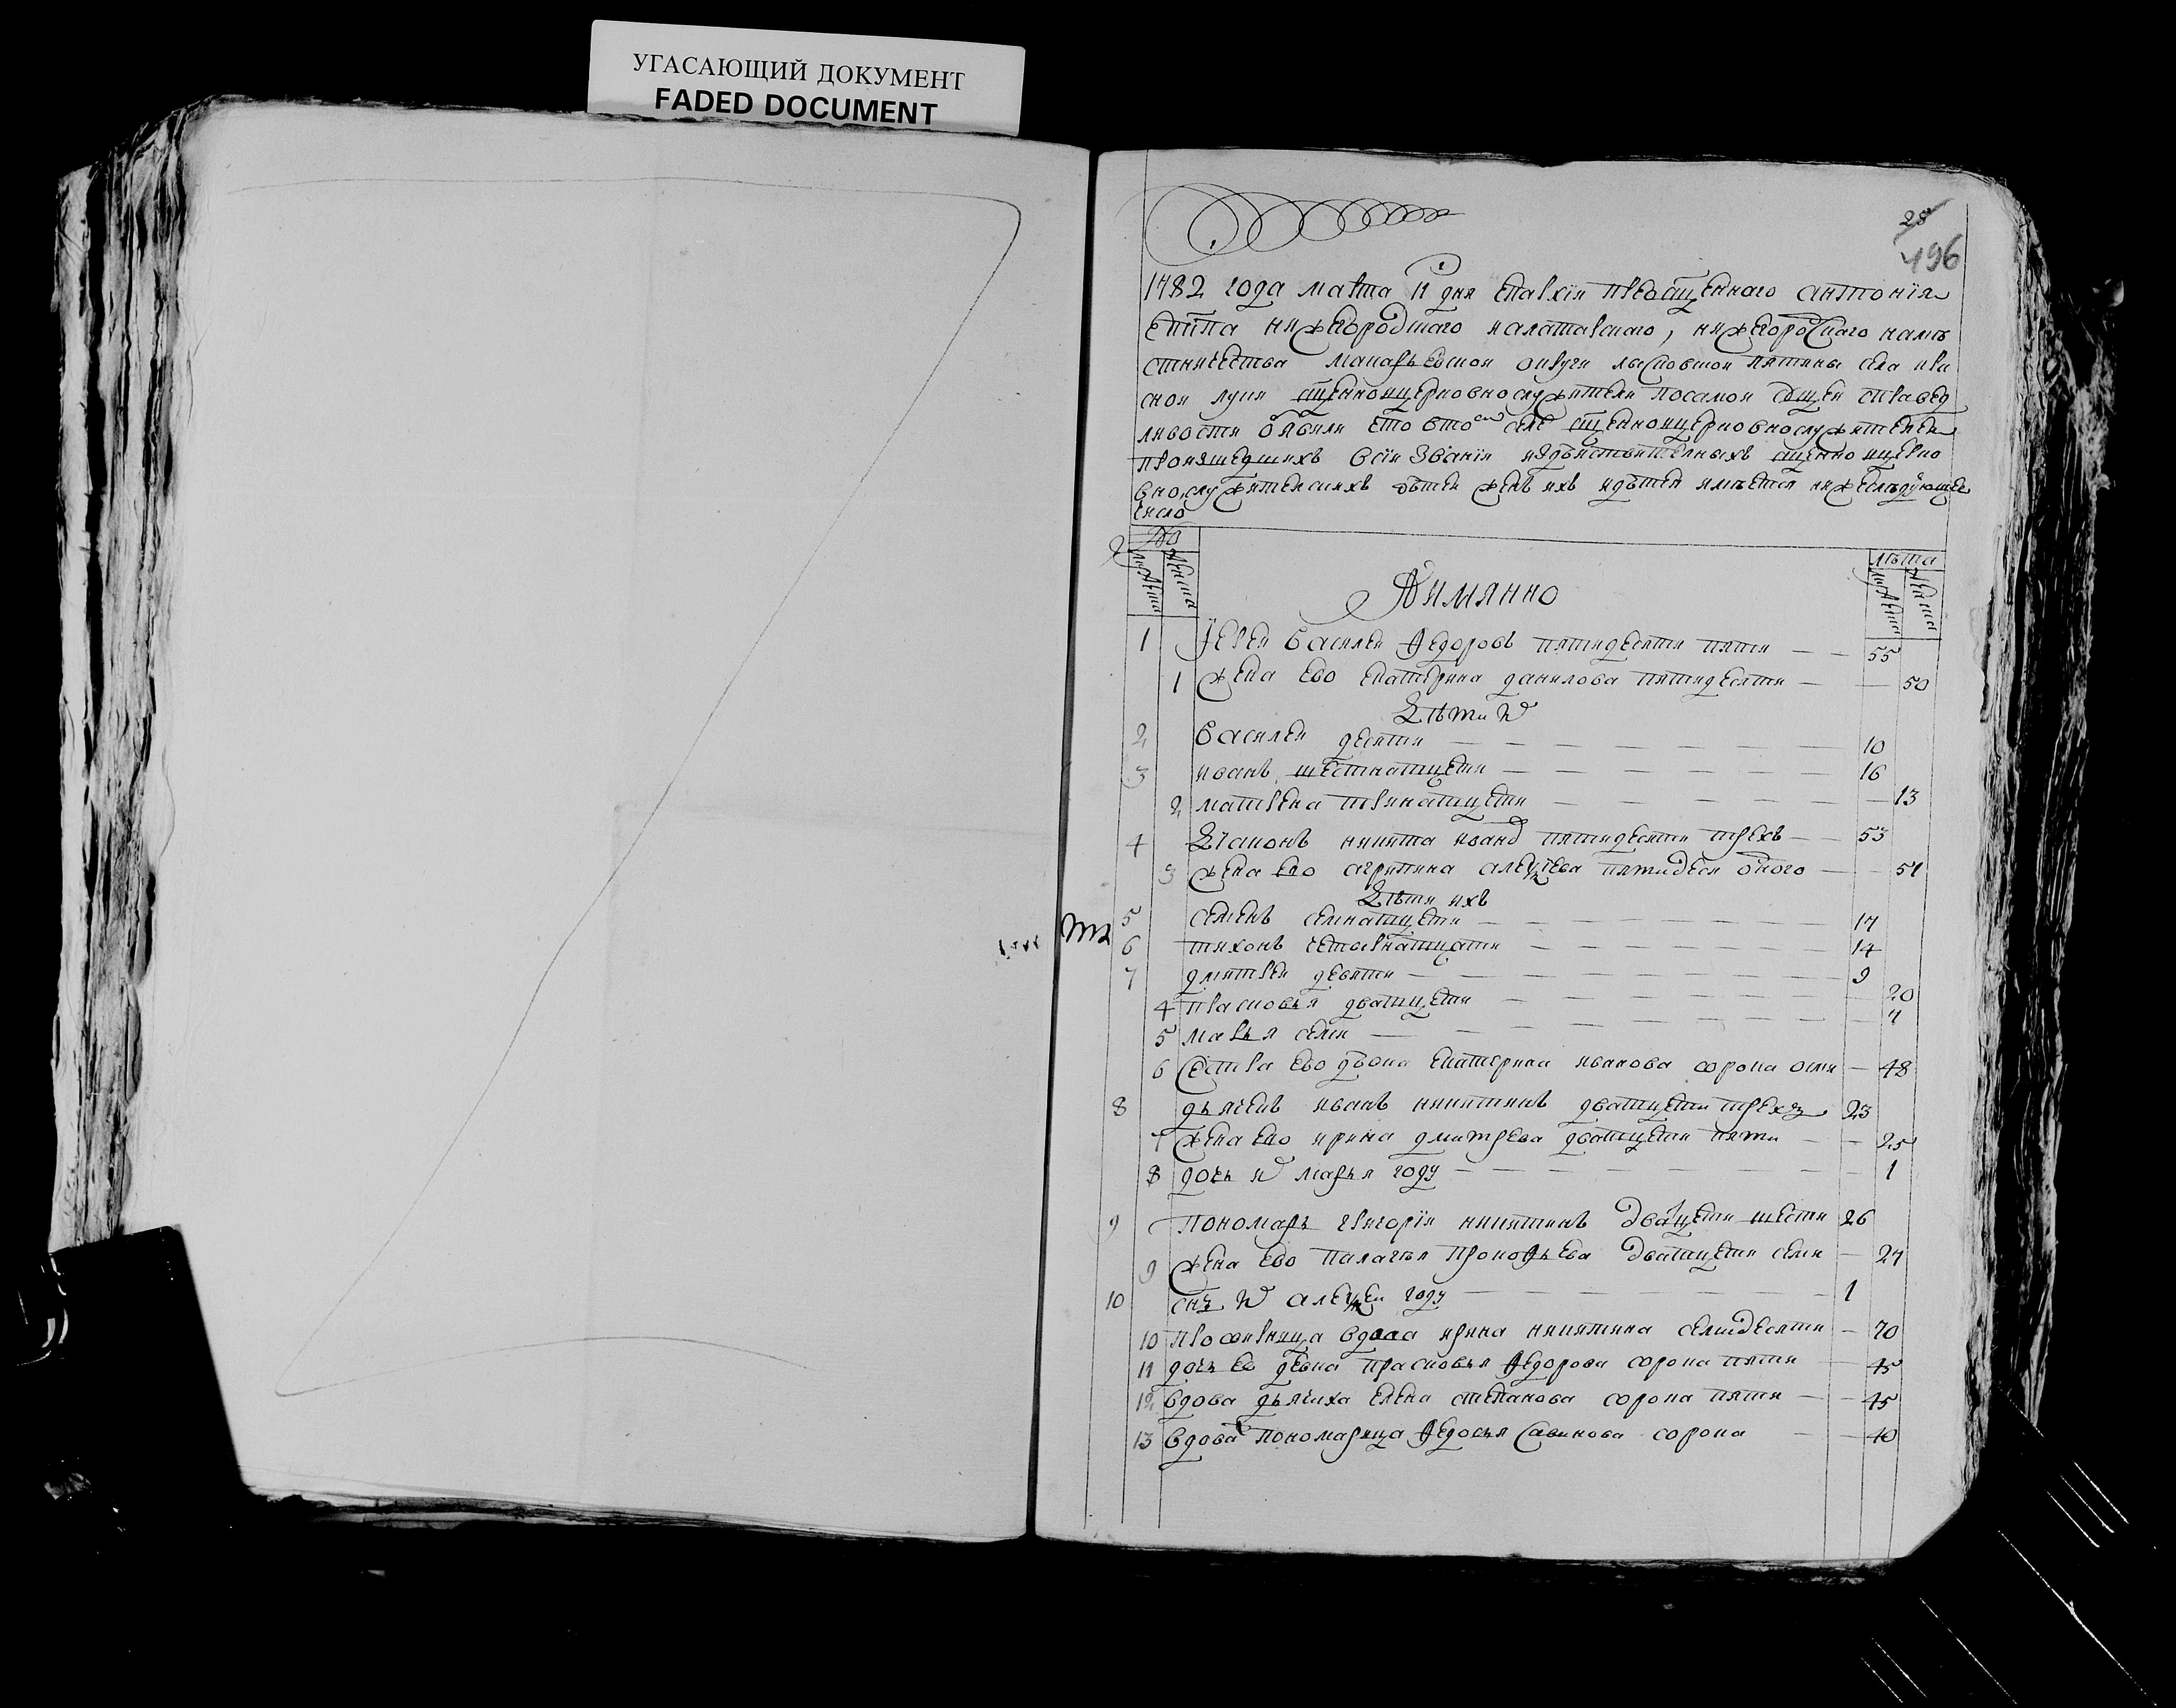 УГАСАЮЩИЙ ДОКУМЕНТ
FADED DOCUMENT
28
496
1782 года марта 11 дня епархїи преосщеннаго антонїя
епіпа нижегородцкаго иалатарскаго, нижегороцкаго намѣ
стничества макарьевской округи лысковской пятины села
ской луки сщенноицерковнослужители посамой сущей справед
ливости обявили что втом селе сщенноицерковнослужителей
произшедшихъ всїи званїи издѣиствителныхъ сщенно ицерко
внослужителскихъ дѣтей женъ ихъ идѣтей имѣется нижеслѣдующее
число
№
лѣта
мужеска
женска
Аимянно
мужеска
женска
1 Іерей василей Федоровъ пятидесяти пяти — — 55
1 жена ево екатерина данилова пятидесяти — — 50
Дѣти их
2 василей десяти — 10
3 иванъ шестнатцети — 16
2 матрена тринатцети — 13
4 Дїаконъ никита иванов пятидесяти трехъ — 53
3 жена ево агрипина алеѯѣева пятидеся одного — 51
Дѣти ихъ
5 семенъ семнатцети — 17
6 тихонъ четырнатцати — 14
7 дмитрей девяти — 9
4 прасковья дватцети — 20
5 марья семи — 7
6 Сестра ево двока екатерина иванова сорока осми — 48
8 дьячекъ иванъ никитинъ дватцети трехъ 23
7 жена ево ирина дмитрева дватцети пяти — 25
8 дочь их марья году — 1
9 Пономарь григорїи никитинъ двацети шести 26
9 жена ево палагья прокофьева дватцети семи — 27
10 снъ их алеѯѣи году — 1
10 просвирница вдова ирина никитина семидесяти — 70
11 дочь ее девка прасковья Федорова сорока пяти — 45
12 вдова дьячиха елена степанова сорока пяти — 45
13 вдова пономарица Федосья Савинова сорока — 40